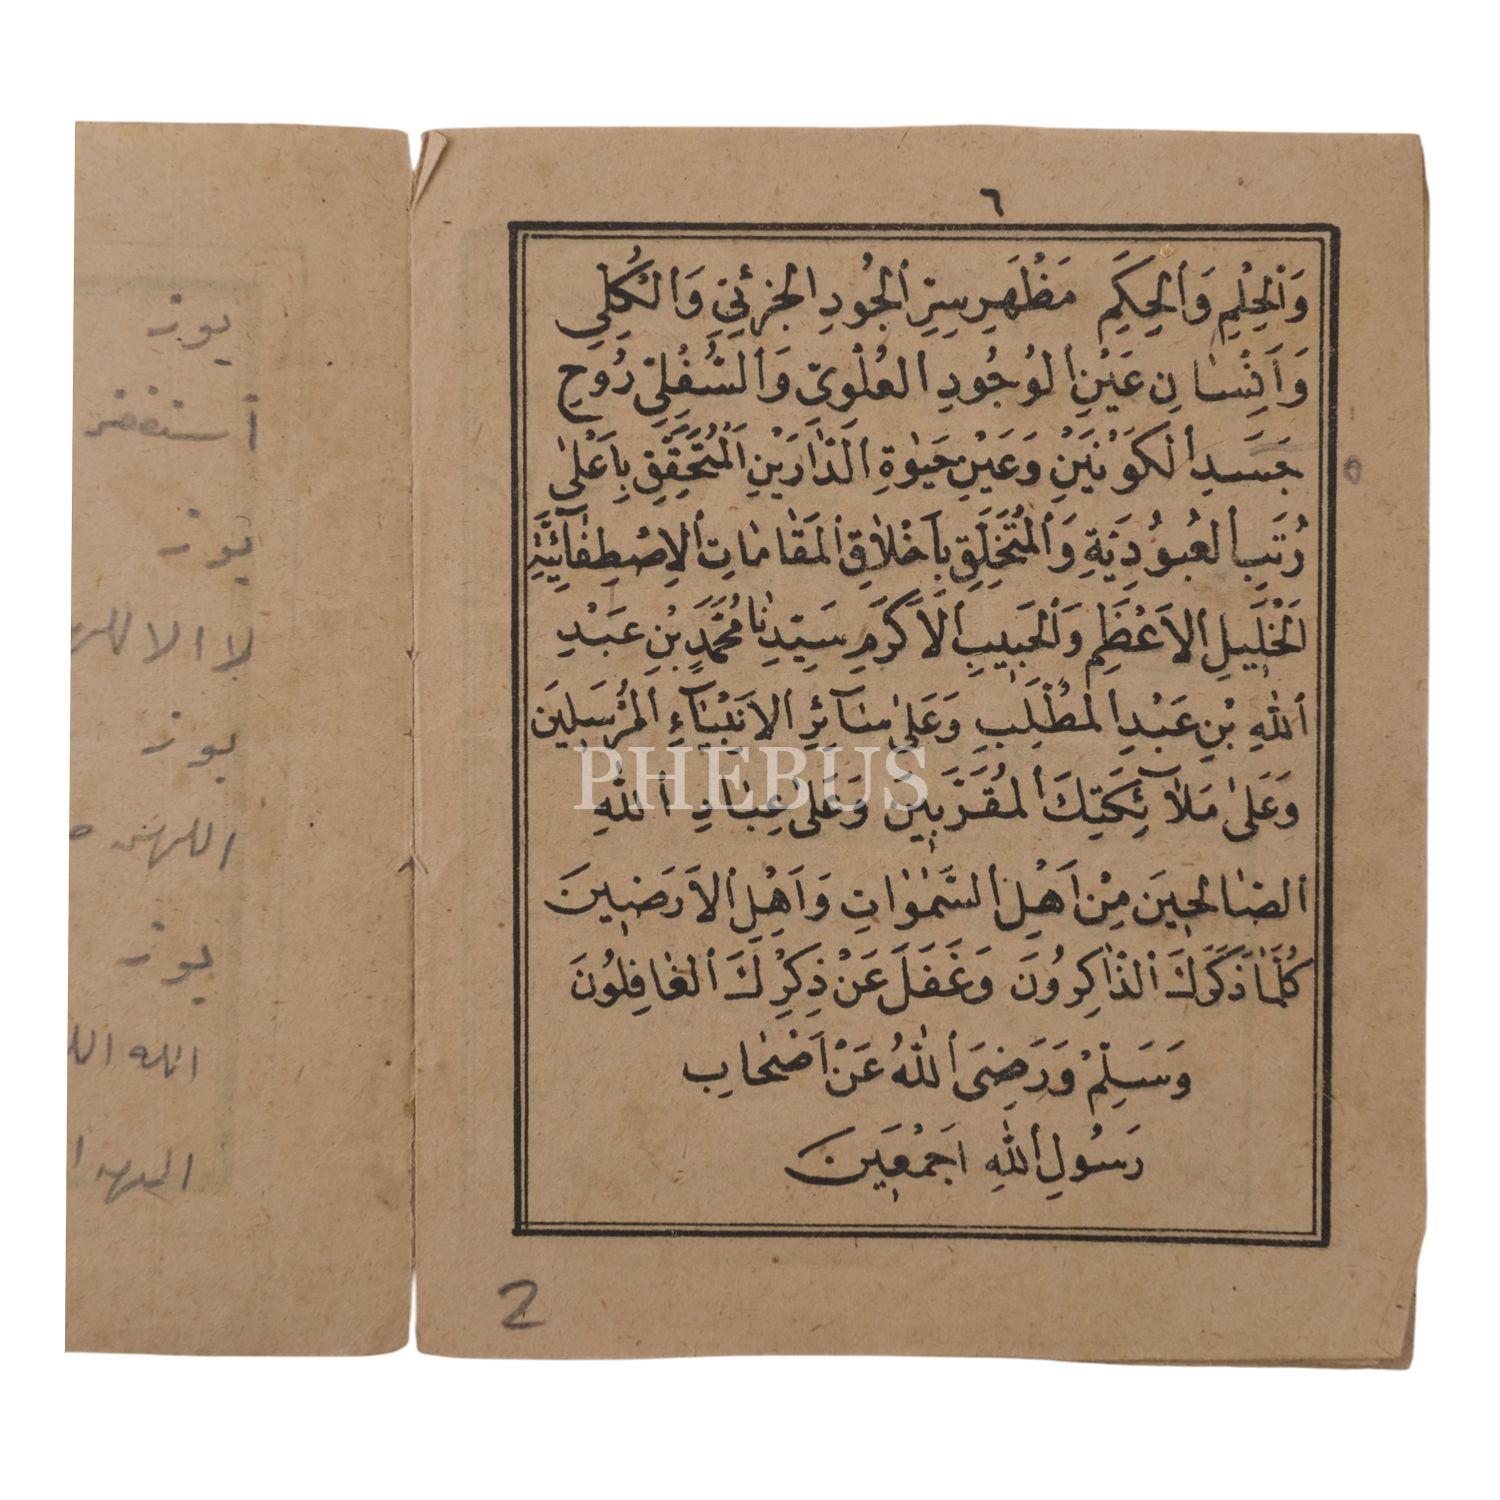 ٦
وَالْحِلْمِ وَالْحِكَمِ مَظْهَرِ سِرِّ الْجُودِ الْجُزْئِيِّ وَالْكُلِّيِ
وَاَنِْسَانِ عَيْنِ الْوُجُودِ الْعُلْوِىِّ وَالسُّفْلِىِّ رُوحِ
جَسَدِ الْكَوْنَيْنِ وَعَيْنِ حَيٰوةِ الدَّارَيْنِ الْمُتَحَقِّقِ بِاَعْلٰى
رُتَبِ الْعُبُودِيَّةِ وَالْمُتَخَلِّقِ بِاَخْلَاقِ الْمَقَامَاتِ الْاِصْطِفَآئِيَّةِ
اَلْخَلِيلِ الْاَعْظَمِ وَالْحَبِيبِ الْاَكْرَمِ سَيِّدِنَا مُحَمَّدٍ بْنِ عَبْدِ
اللّٰهِ بْنِ عَبْدِ الْمُطَّلِبِ وَعَلٰى سَآئِرِ الْاَنْبِيَآءِ الْمُرْسَلِينَ
وَعَلٰى مَلَآئِكَتِكَ الْمُقَرَّبِينَ وَعَلٰى عِبَادِ اللّٰهِ
الصَّالِحِينَ مِنْ اَهْلِ السَّمٰوَاتِ وَاَهْلِ الْاَرَضِينَ
كُلَّمَا ذَكَرَكَ الذَّاكِرُونَ وَغَفَلَ عَنْ ذِكْرِكَ الْغَافِلُونَ
وَسَلِّمْ وَرَضِىَ اللّٰهُ عَنْ اَصْحَابِ
رَسُولِ اللّٰهِ اَجْمَعِينَ
2
يوز
أستغفر
يوز
لا الا اللہ
يوز
اللهم
يوز
الله
PHEBUS